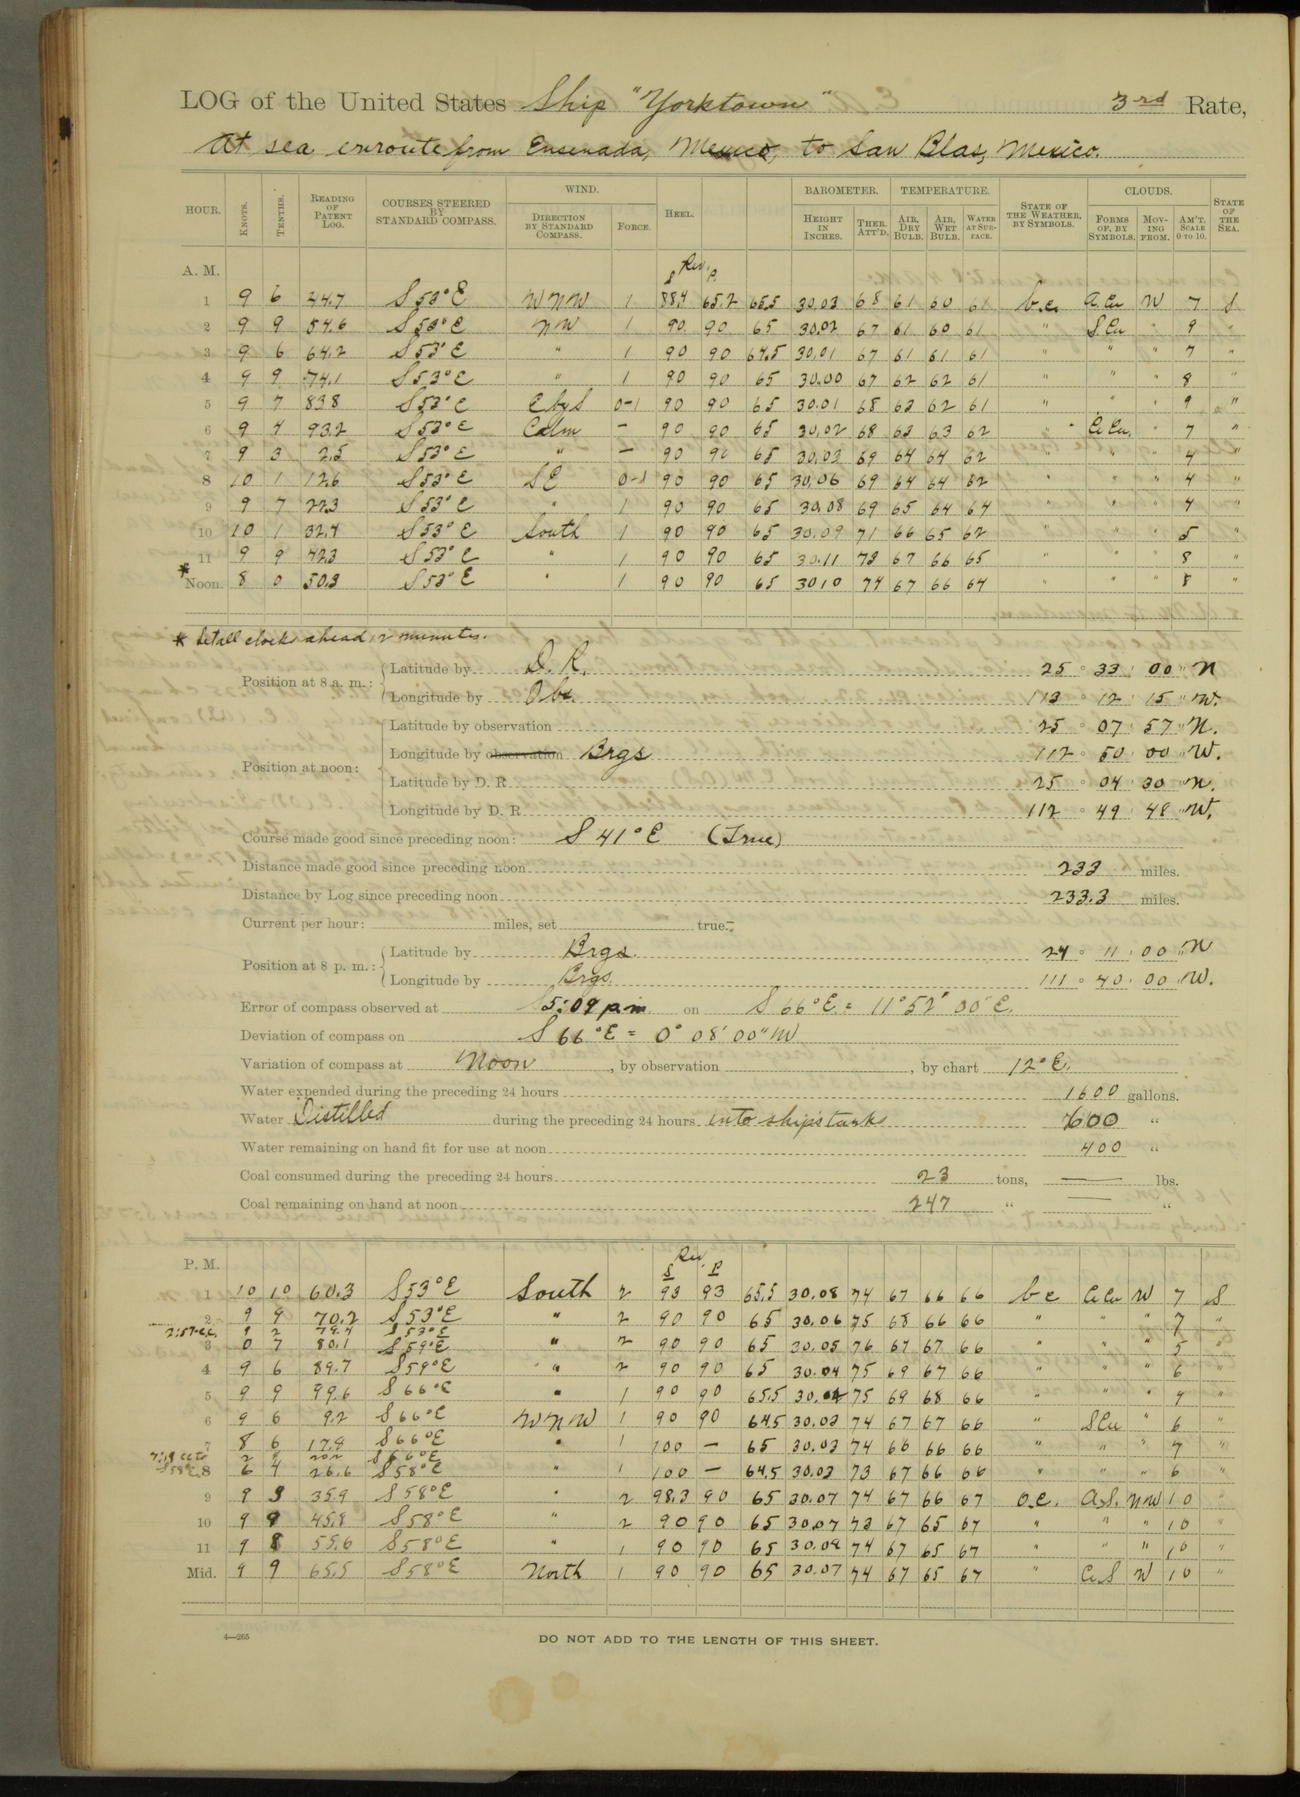 LOG of the United States Ship "Yorktown" 3rd Rate,
At sea enroute from Ensenada, Mexico, to San Blas, Mexico.
HOUR. KNOTS. TENTHS. READING OF PATENT LOG. COURSES STEERED BY STANDARD COMPASS. WIND. DIRECTION BY STANDARD COMPASS. FORCE. HEEL. BAROMETER. HEIGHT IN INCHES. THER. ATT'D. TEMPERATURE. AIR, DRY BULB. AIR, WET BULB. WATER AT SURFACE. STATE OF THE WEATHER, BY SYMBOLS. CLOUDS. FORMS OF, BY SYMBOLS. MOVING FROM. AM'T. SCALE 0 TO 10. STATE OF THE SEA.
A. M. Rev. S P.
1 9 6 44.7 S 53° E WNW 1 88.4 65.2 65.5 30.03 68 61 60 61 b.c. A.Cu W 7 S
2 9 9 54.6 S 53° E NW 1 90 90 65 30.02 67 61 60 61 " S.Cu " 9 "
3 9 6 64.2 S 53° E " 1 90 90 64.5 30.01 67 61 61 61 " " " 7 "
4 9 9 74.1 S 53° E " 1 90 90 65 30.00 67 62 62 61 " " " 8 "
5 9 7 83.8 S 53° E E by S 0-1 90 90 65 30.01 68 63 62 61 " " " 9 "
6 9 4 93.2 S 53° E Calm — 90 90 65 30.02 68 63 63 62 " Ci Cu. " 7 "
7 9 3 2.5 S 53° E " — 90 90 65 30.03 69 64 64 62 " " " 4 "
8 10 1 12.6 S 53° E SE 0-1 90 90 65 30.06 69 64 64 62 " " " 4 "
9 9 7 22.3 S 53° E " 1 90 90 65 30.08 69 65 64 64 " " " 4 "
10 10 1 32.4 S 53° E South 1 90 90 65 30.09 71 66 65 62 " " " 5 "
11 9 9 42.3 S 53° E " 1 90 90 65 30.11 73 67 66 65 " " " 8 "
* Noon. 8 0 50.3 S 53° E " 1 90 90 65 30.10 74 67 66 64 " " " 8 "
* Set all clocks ahead 12 minutes.
Position at 8 a. m.: Latitude by D. R. 25 ° 33 ' 00 " N
Longitude by Obs. 113 ° 12 ' 15 " W.
Position at noon: Latitude by observation 25 ° 07 ' 57 " N.
Longitude by observation Brgs 112 ° 50 ' 00 " W.
Latitude by D. R. 25 ° 04 ' 30 " N.
Longitude by D. R. 112 ° 49 ' 48 " W.
Course made good since preceding noon: S 41° E (True)
Distance made good since preceding noon 233 miles.
Distance by Log since preceding noon 233.3 miles.
Current per hour: miles, set true.
Position at 8 p. m.: Latitude by Brgs. 24 ° 11 ' 00 " N
Longitude by Brgs. 111 ° 40 ' 00 " W.
Error of compass observed at 5:09 p.m on S 66° E. = 11° 52' 00" E.
Deviation of compass on S 66° E = 0° 08' 00" W
Variation of compass at Noon, by observation , by chart 12° E.
Water expended during the preceding 24 hours 1600 gallons.
Water Distilled during the preceding 24 hours into ship's tanks 600 "
Water remaining on hand fit for use at noon 400 "
Coal consumed during the preceding 24 hours 23 tons, — lbs.
Coal remaining on hand at noon 247 " — "
P. M. Rev. S P
1 10 10 60.3 S 53° E South 2 93 93 65.5 30.08 74 67 66 66 b c Ci Cu W 7 S
2 9 9 70.2 S 53° E " 2 90 90 65 30.06 75 68 66 66 " " " 7 "
2:57 c.c. 9 2 79.4 S 53° E
3 0 7 80.1 S 59° E " 2 90 90 65 30.05 76 67 67 66 " " " 5 "
4 9 6 89.7 S 59° E " 2 90 90 65 30.04 75 69 67 66 " " " 6 "
5 9 9 99.6 S 66° E " 1 90 90 65.5 30.02 75 69 68 66 " " " 4 "
6 9 6 9.2 S 66° E WNW 1 90 90 64.5 30.03 74 67 67 66 " S Cu " 6 "
7 8 6 17.8 S 66° E " 1 100 — 65 30.03 74 66 66 66 " " " 7 "
2 4 20.2 S 66° E
S 58° E. 8 6 4 26.6 S 58° E " 1 100 — 64.5 30.03 73 67 66 66 " " " 6 "
9 9 3 35.9 S 58° E " 2 98.3 90 65 30.07 74 67 66 67 o.c. A.S. NW 10 "
10 9 9 45.8 S 58° E " 2 90 90 65 30.07 73 67 65 67 " " " 10 "
11 9 8 55.6 S 58° E " 1 90 90 65 30.08 74 67 65 67 " " " 10 "
Mid. 9 9 65.5 S 58° E North 1 90 90 65 30.07 74 67 65 67 " Ci S W 10 "
4—265
DO NOT ADD TO THE LENGTH OF THIS SHEET.